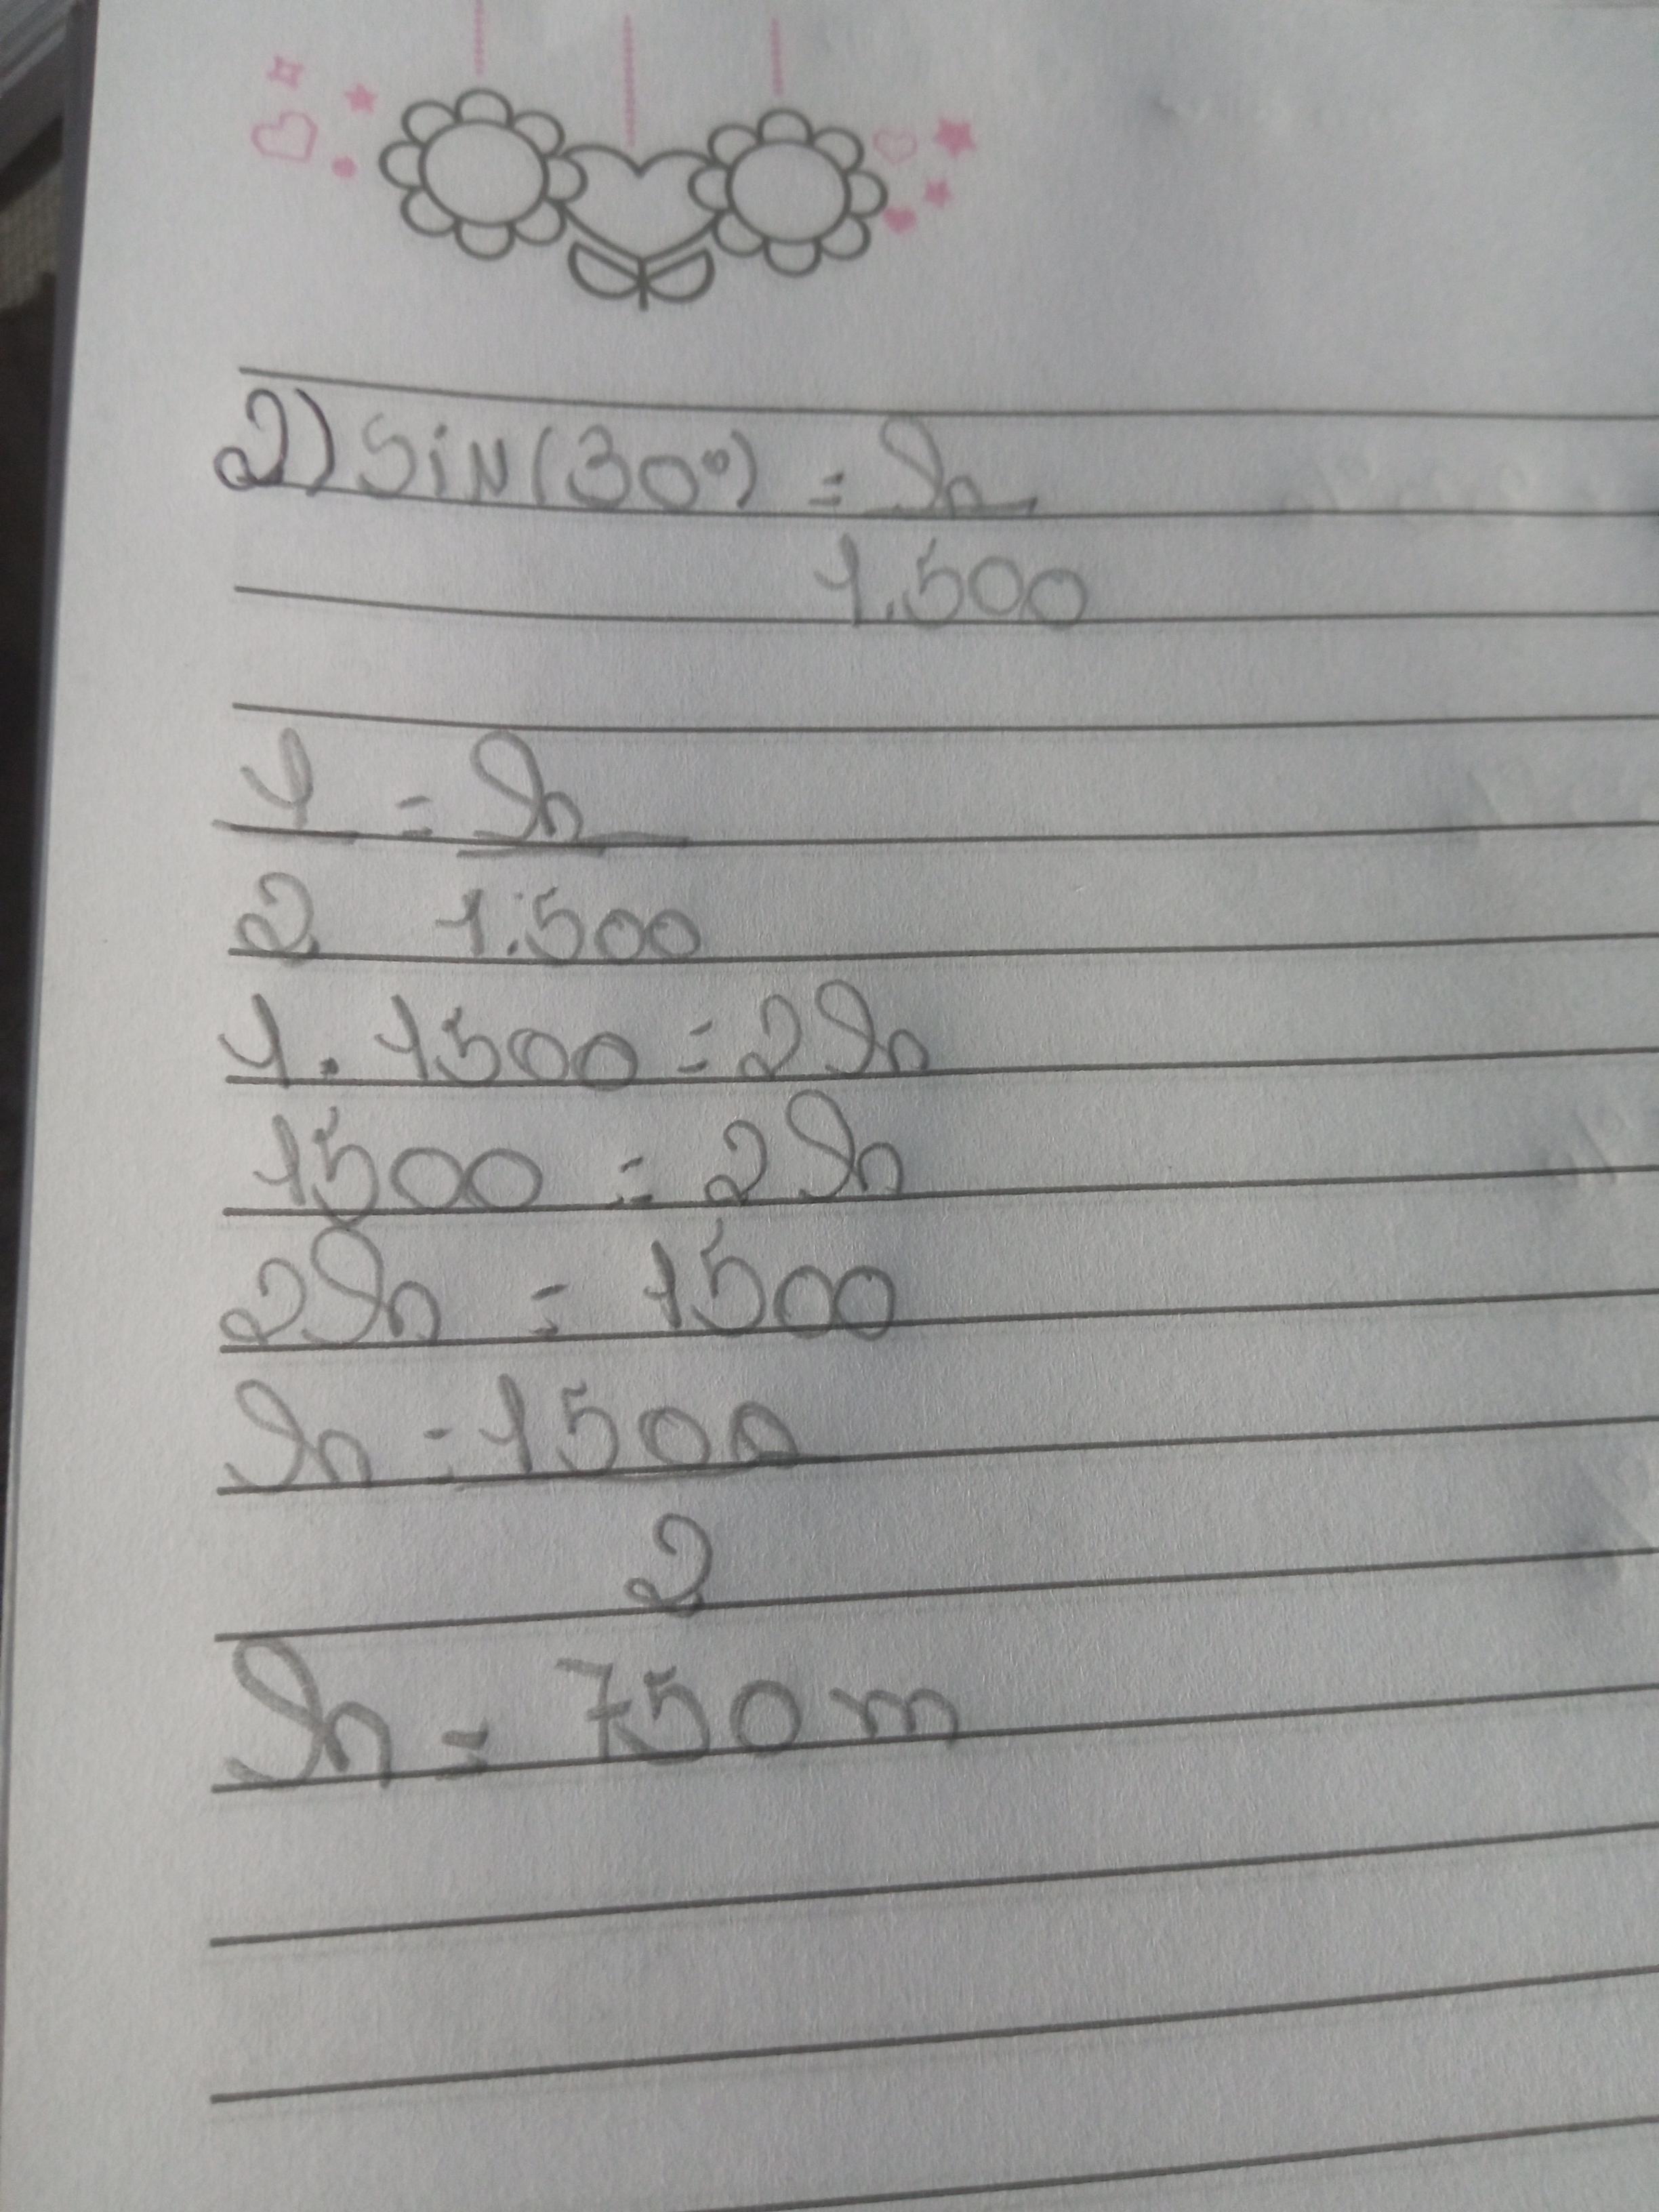 2) SiN(30°) = h
1.500
1 = h
2 1.500
1. 1500 = 2h
1500 = 2h
2h = 1500
h = 1500
2
h = 750m